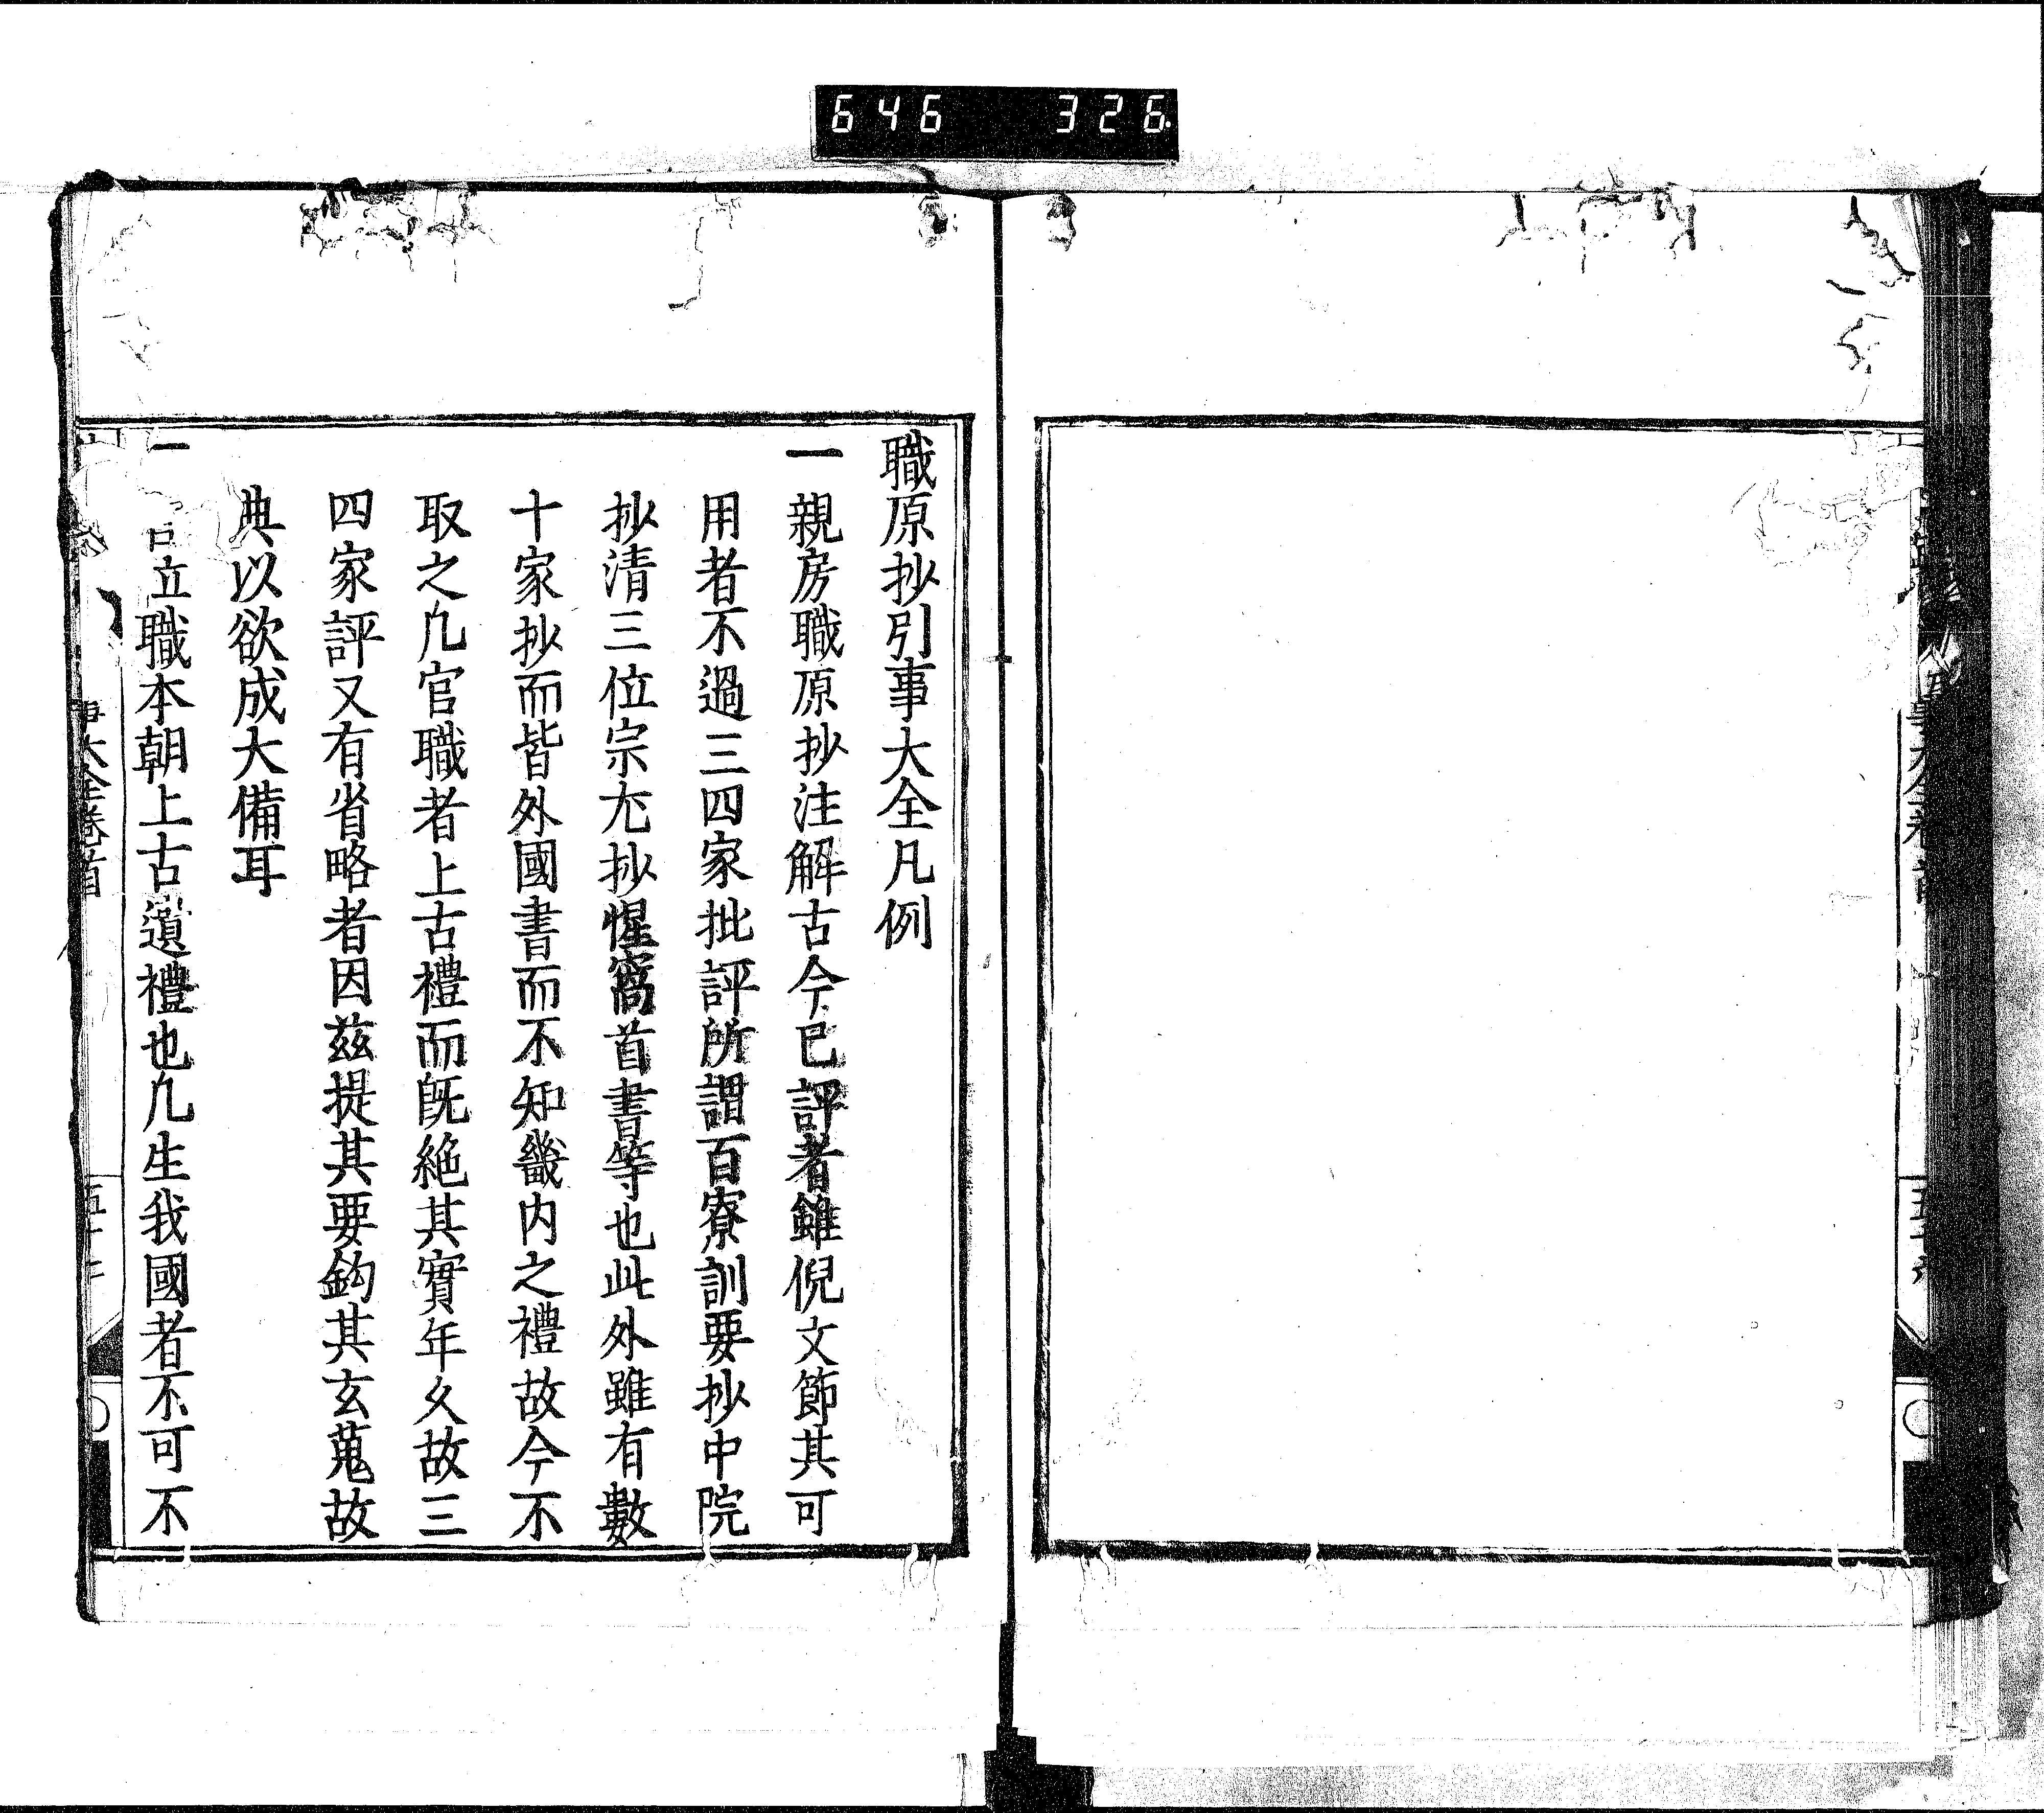 646 326
職原抄引事大全凡例
一親房職原抄注解古今已評者雖倪文節其可
用者不過三四家批評所謂百寮訓要抄中院
抄清三位宗尤抄惺窩首書等也此外雖有數
十家抄而皆外國書而不知畿内之禮故今不
取之凢官職者上古禮而既絶其實年久故三
四家評又有省略者因兹提其要鈎其玄蒐故
典以欲成大備耳
一立職本朝上古遺禮也凢生我國者不可不
事大全卷首